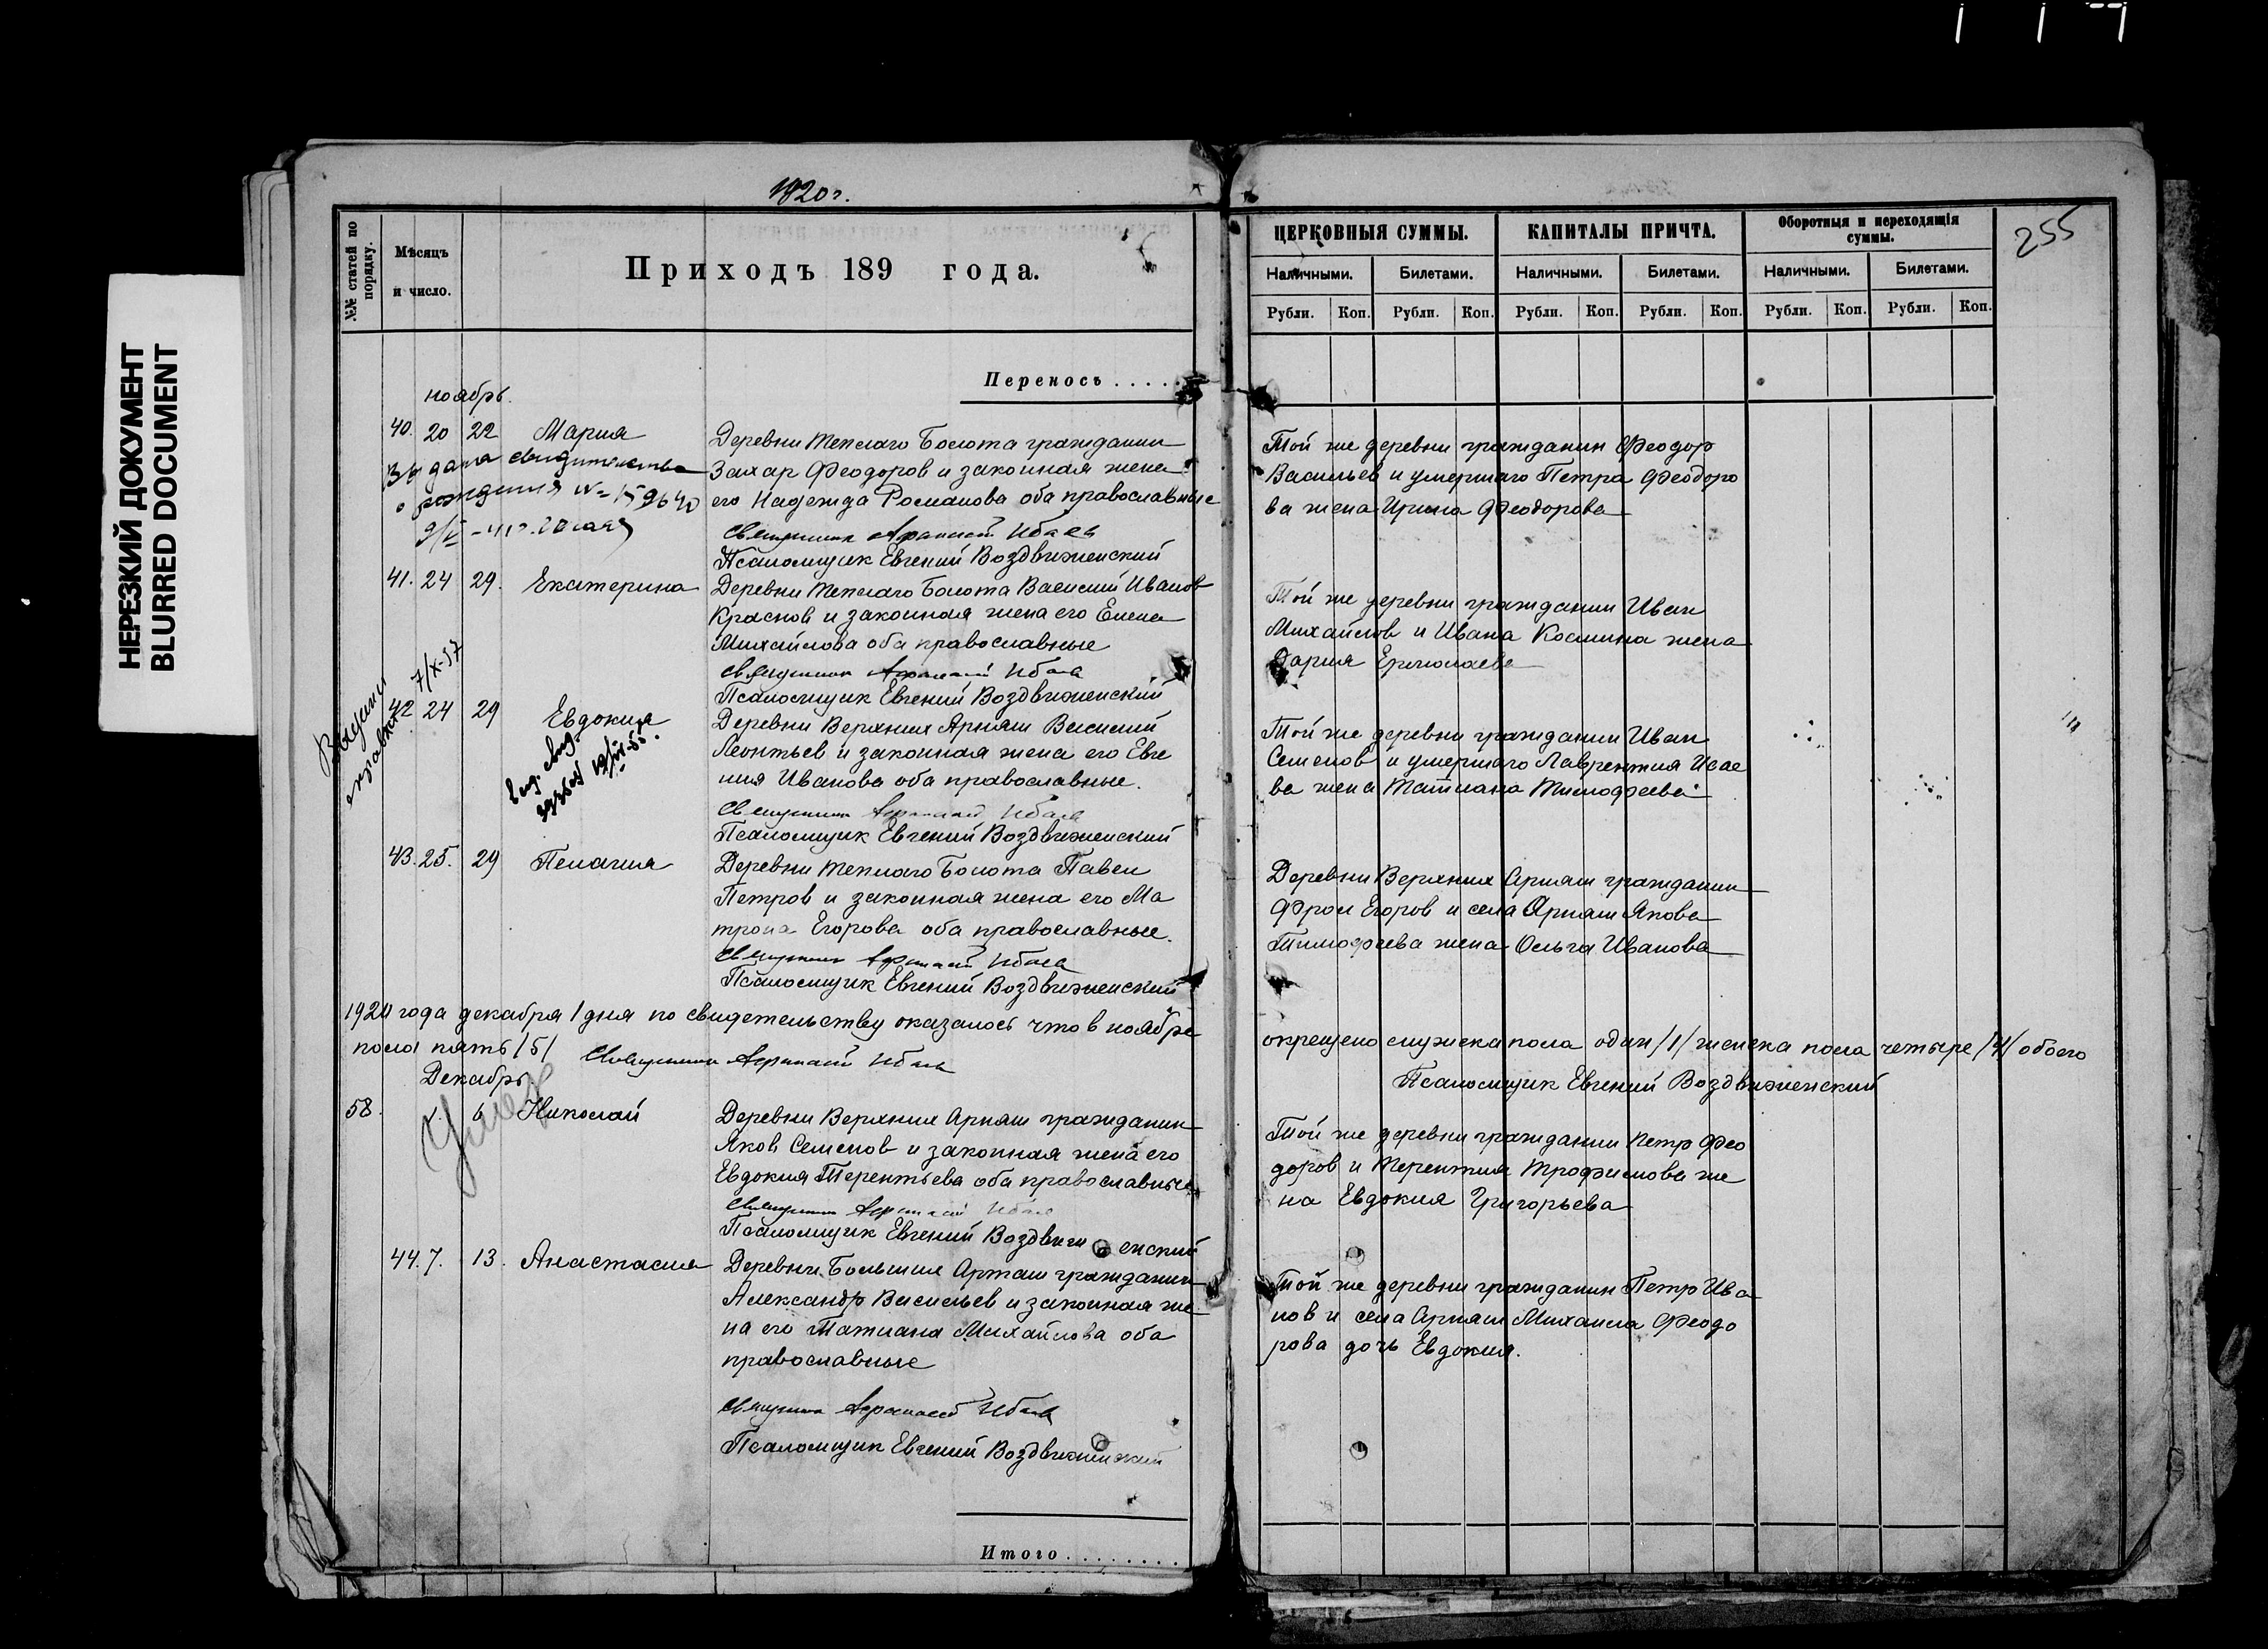 НЕРЕЗКИЙ ДОКУМЕНТ
BLURRED DOCUMENT
1920 г.
№№ статей по порядку.
Мѣсяцъ и число.
Приходъ 189 года.
Переносъ . . . . .
ноябрь.
40. 20 22 Мария
Деревни Теплаго Болота гражданин
Захар Феодоров и законная жена
его Надежда Романова оба православные
Псаломщик Евгений Воздвиженский
дата свидетельства
о рождения №
41. 24 29. Екатерина
Деревни Теплаго Болота Василий Иванов
Краснов и законная жена его Елена
Михайлова оба православные
Псаломщик Евгений Воздвиженский
7/X-57
42 24 29 Евдокия
Деревни Верхних Арняш Василий
Леонтьев и законная жена его Евге
ния Иванова оба православные.
Псаломщик Евгений Воздвиженский
43. 25. 29 Пелагия
Деревни Теплаго Болота Павел
Петров и законная жена его Ма
трона Егорова оба православные.
Псаломщик Евгений Воздвиженский
1920 года декабря 1 дня по свидетельству оказалось что в ноябре
пола пять /5/
Декабрь.
58. 6 Николай
Деревни Верхних Арняш гражданин
Яков Семенов и законная жена его
Евдокия Терентьева оба православные
Псаломщик Евгений Воздвиженский
44. 7. 13. Анастасия
Деревни Большия Арташ гражданин
Александр Васильев и законная же
на его Татиана Михайлова оба
православные
Псаломщик Евгений Воздвиженский
Итого . . . . . . . .
255
ЦЕРКОВНЫЯ СУММЫ. КАПИТАЛЫ ПРИЧТА. Оборотныя и переходящія суммы.
Наличными. Билетами. Наличными. Билетами. Наличными. Билетами.
Рубли. Коп. Рубли. Коп. Рубли. Коп. Рубли. Коп. Рубли. Коп. Рубли. Коп.
Той же деревни гражданин Феодор
Васильев и умершаго Петра Феодоро
ва жена Ирина Феодорова
Той же деревни гражданин Иван
Михайлов и Ивана Космина жена
Дария Ермолаева
Той же деревни гражданин Иван
Семенов и умершаго Лаврентия Исае
ва жена Татиана Тимофеева
Деревни Верхних Арняш гражданин
Фрол Егоров и села Арняш Якова
Тимофеева жена Ольга Иванова
окрещено мужска пола один /1/ женска пола четыре /4/ обоего
Псаломщик Евгений Воздвиженский
Той же деревни гражданин Петр Фео
доров и Терентия Трофимова же
на Евдокия Григорьева
Той же деревни гражданин Петр Ива
нов и села Арняш Михаила Феодо
рова дочь Евдокия.